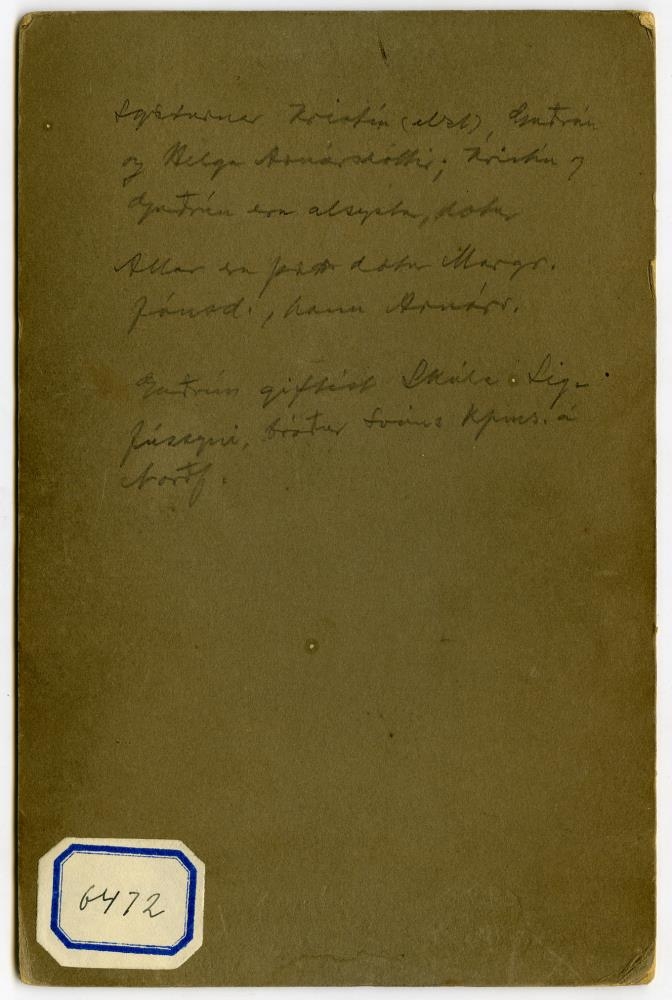 Systurnar Kristín (elzt), Guðrún
og Helga Arnórsdóttir; Kristín og
Guðrún eru alsystur,
Allar eru þær dætur Margr.
Jónsd., konu Arnórs.
Guðrún giftist Skúla Sig-
fússyni, bróður Sveins Kpms. á
Norðf.
6472